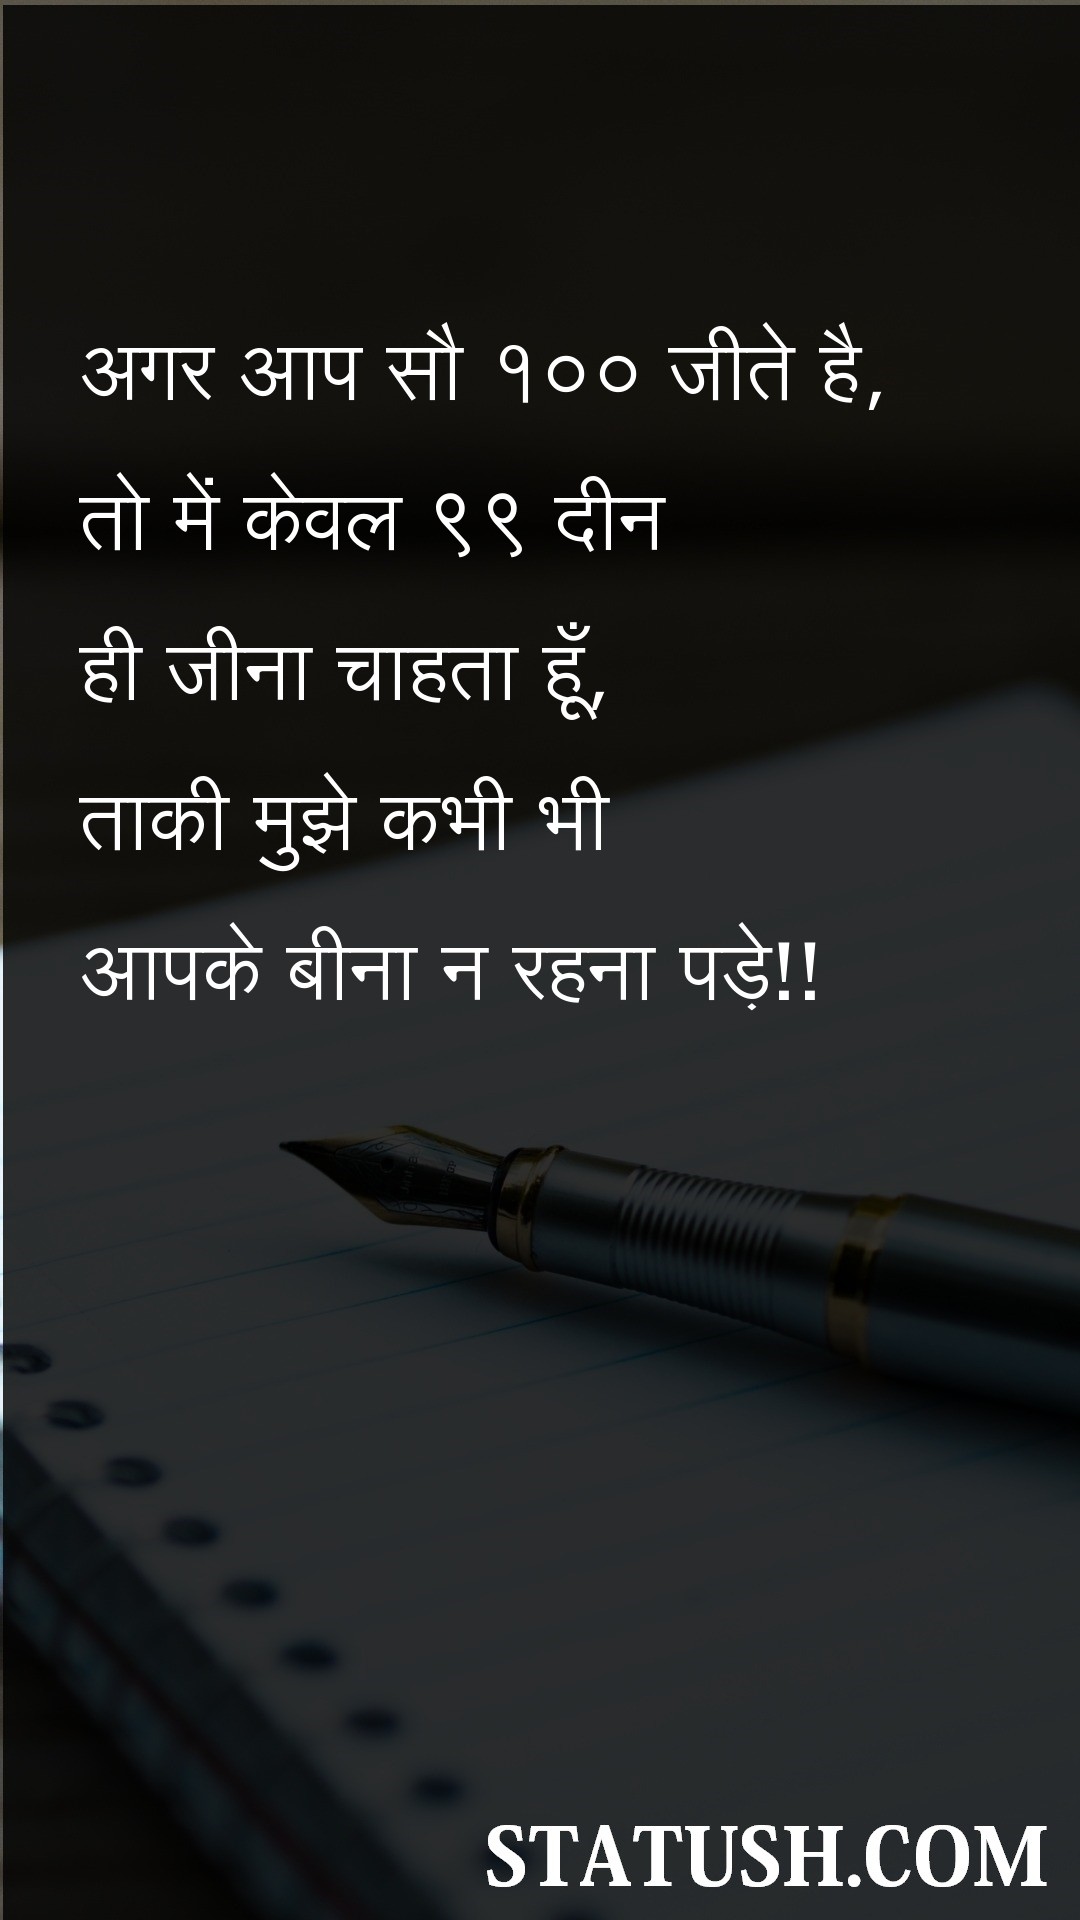 अगर आप सौ १०० जीते है,
तो में केवल ९९ दीन
ही जीना चाहता हूँ,
ताकी मुझे कभी भी
आपके बीना न रहना पड़े!!
STATUSH.COM